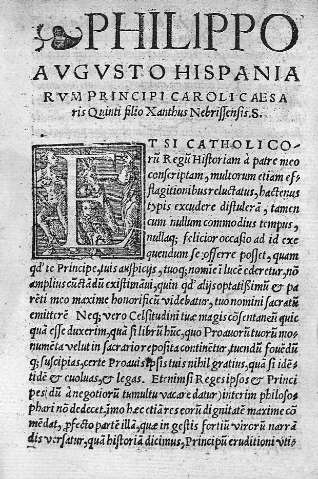 PHILIPPO
AVGVSTO HISPANIA
RVM PRINCIPI CAROLI CAESA
ris Quinti filio Xanthus Nebrissensis. S.
ET SI CATHOLICO-
rũ Regũ Historiam à patre meo
conscriptam, multorum etiam ef-
flagitionibus reluctatus, hactenus
typis excudere distulerã, tamen
cum nullum commodius tempus,
nullaq; felicior occasio ad id exe
quendum se offerre posset, quam
qď te Principe, tuis auspicijs, tuoq; nomine ĩ lucẽ ederetur, nõ
amplius cũctãdũ existimaui, quin qď alijs optatissimũ &
parẽti meo maxime honorificũ videbatur, tuo nomini sacratũ
emitterẽ Neq; vero Celsitudini tuæ magis cõsentaneũ quic
quã esse duxerim, quã si librũ hũc, quo Proauorũ tuorũ mo-
numẽta velut in sacrario reposita continẽtur, tuendũ fouẽdũ
q; suscipias, certe Proauis ipsis tuis nihil gratius, quã si idẽ-
tidẽ & euoluas, & legas. Et nimsi Reges ipsos & Princi
pes (dũ à negotiorũ tumultu vacare datur) interim philoso-
phari nõ dedecet, ĩmo hæc etiã res eorũ dignitatẽ maxime cõ
mẽdat, ꝓfecto partẽ illã, quæ in gestis fortiũ virorũ narrã
dis versatur, quã historiã dicimus, Principũ eruditioni vtis